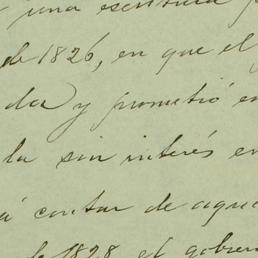 una escritura
de 1826, en que el
da y prometió en
la sin interés en
á contar de aque
1828 el gobier